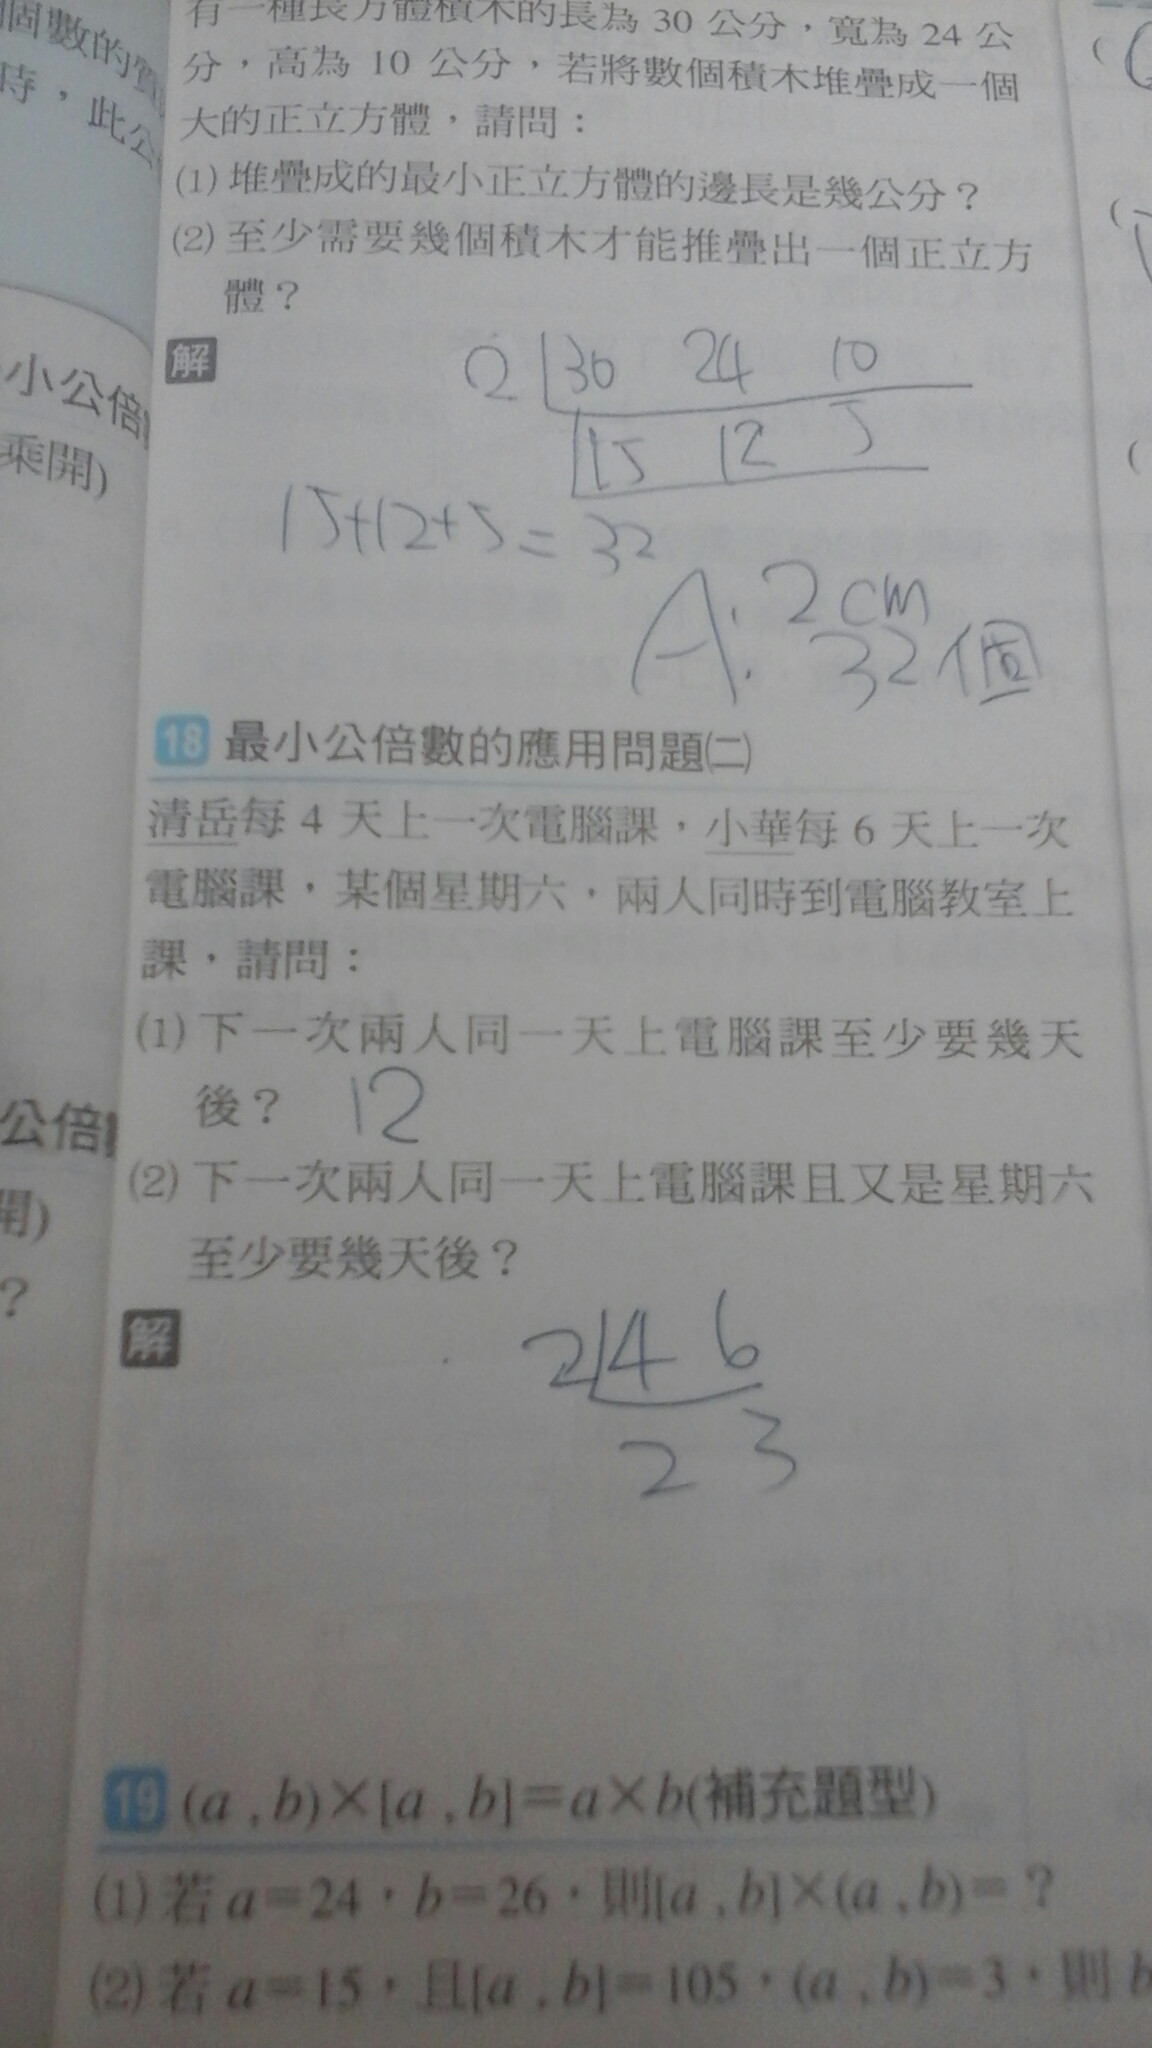 個數的質
時,此公
小公倍
乘開)
公倍
開)
?
有一種長方體積木的長為 30 公分,寬為 24 公
分,高為 10 公分,若將數個積木堆疊成一個
大的正立方體,請問:
(1) 堆疊成的最小正立方體的邊長是幾公分?
(2) 至少需要幾個積木才能推疊出一個正立方
體?
解
2 30 24 10
15 12 5
15+12+5=32
A: 2 cm
32個
18 最小公倍數的應用問題(二)
清岳每 4 天上一次電腦課,小華每 6 天上一次
電腦課,某個星期六,兩人同時到電腦教室上
課,請問:
(1) 下一次兩人同一天上電腦課至少要幾天
後? 12
(2) 下一次兩人同一天上電腦課且又是星期六
至少要幾天後?
解
2 4 6
2 3
19 (a , b)×[a , b]=a×b(補充題型)
(1) 若 a=24,b=26,則[a , b]×(a , b)=?
(2) 若 a=15,且[a , b]=105,(a , b)=3,則 b